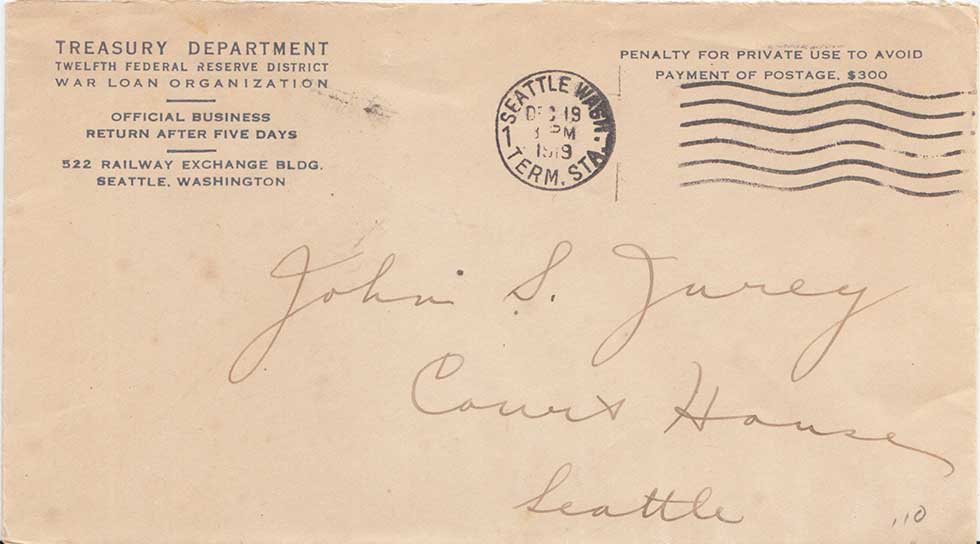 TREASURY DEPARTMENT
TWELFTH FEDERAL RESERVE DISTRICT
WAR LOAN ORGANIZATION
OFFICIAL BUSINESS
RETURN AFTER FIVE DAYS
522 RAILWAY EXCHANGE BLDG.
SEATTLE, WASHINGTON
SEATTLE WASH.
DEC 19
PM
1919
TERM. STA.
1
PENALTY FOR PRIVATE USE TO AVOID
PAYMENT OF POSTAGE, $300
John S. Jurey
Court House
Seattle
110